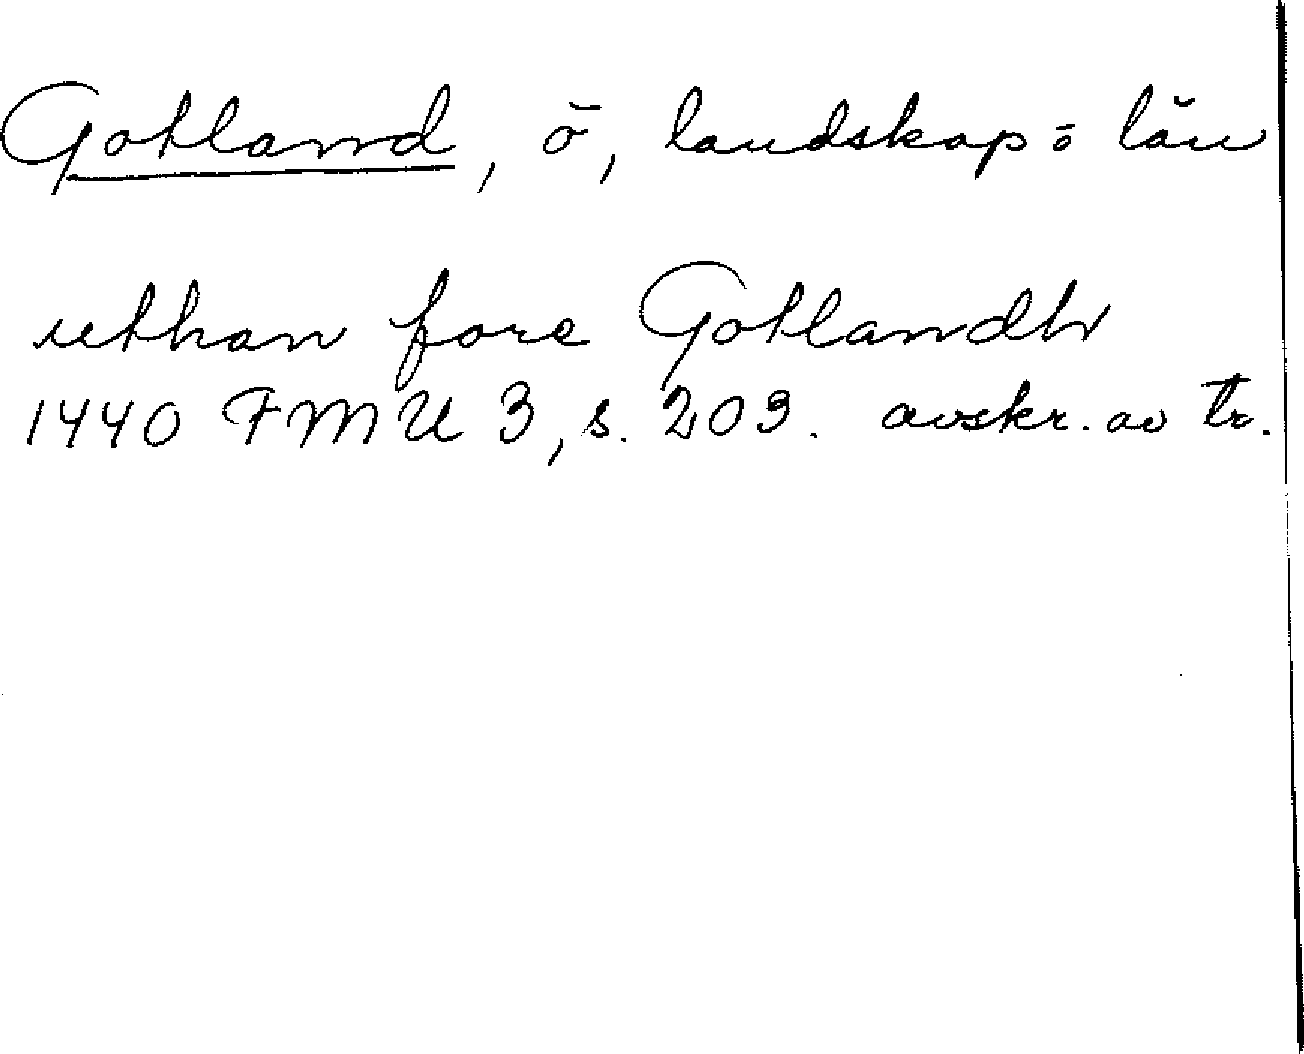 Gotland, ö, landskap o län
uthan fore Gotlandh
1440 FMU 3, s. 203. avskr. av tr.